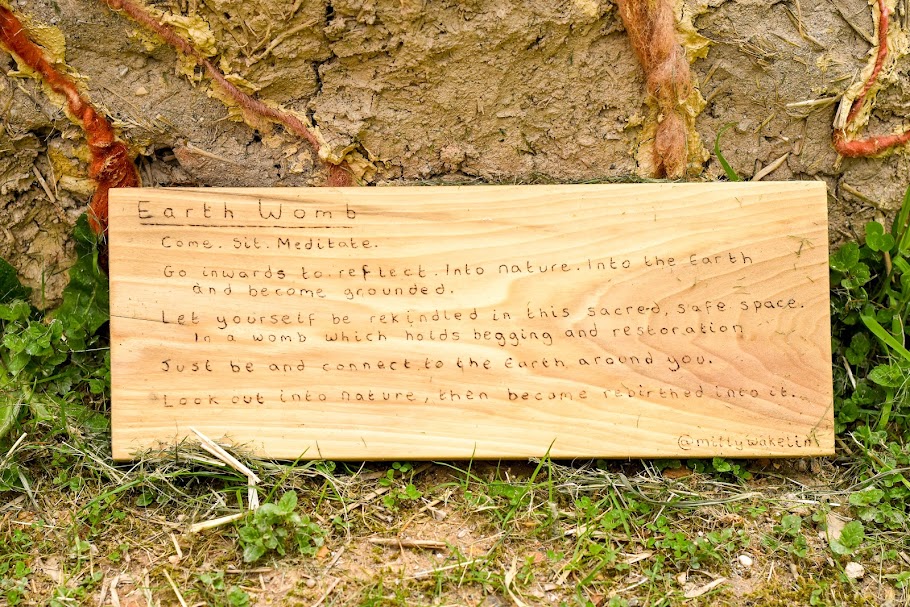 Earth Womb
Come. Sit. Meditate.
Go inwards to reflect. Into nature. Into the Earth
and become grounded.
Let yourself be rekindled in this sacred, safe space.
In a womb which holds begging and restoration
Just be and connect to the Earth around you.
Look out into nature, then become rebirthed into it.
@mittywakelin